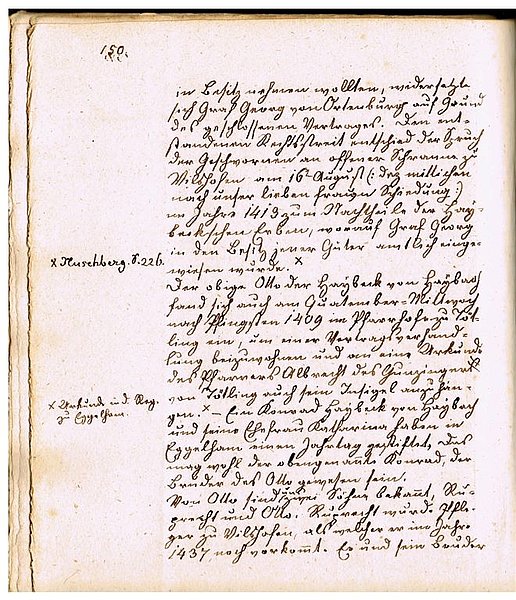 150.
in Besitz nehmen wollten, widersetzte
sich Graf Georg von Ortenburg auf Grund
des geschlossenen Vertrages. Den ent-
standenen Rechtsstreit entschied der Spruch
der Geschwornen an offener Schranne zu
Vilshofen am 16. August (: dez mittichen
nach unser lieben fraun Schiedung :)
im Jahre 1413 zum Nachtheile der Hay-
beckschen Erben, worauf Graf Georg
in den Besitz jener Güter amtlich einge-
wiesen wurde. ×
× Huschberg. S. 226.
Der obige Otto der Haybeck von Haybach
fand sich auch am Quatember-Mittwoch
nach Pfingsten 1409 im Pfarrhofe zu Töt-
ling ein, um einer Vertragsverhand-
lung beizuwohnen und an eine Urkunde
des Pfarrers Albrecht des
von Tötling auch sein Insigel anzuhän-
gen. × – Ein Konrad Haybeck von Haybach
× Urkunde in d. Reg.
zu Eggelham.
und seine Ehefrau Katharina haben in
Eggelham einen Jahrtag gestiftet. Das
mag wohl der obengenannte Konrad, der
Bruder des Otto gewesen sein.
Von Otto sind uns zwei Söhne bekannt, Ru-
precht und Otto. Ruprecht wurde Pfle-
ger zu Vilshofen, als welcher er im Jahre
1437 noch vorkommt. Er und sein Bruder